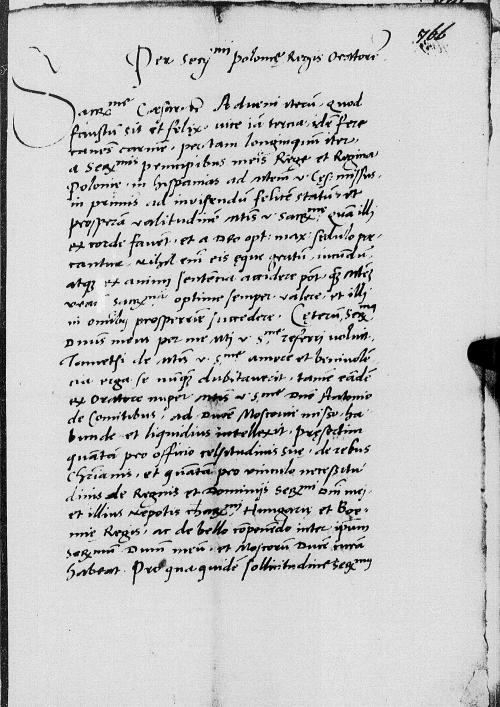 766
Per Ser^mi Poloniae Regis Oratore
Sacra^me Caesar. etc. Adveni iterū, quod
faustū sit et felix, vice iā tercia, idē fere
carnie, per tam longinquū iter,
a Ser^mis principibus meis Rege et Regina
Polonie, in hispanias ad Mtem v. Ces. missus,
in primis ad invisendū felicē statū et
prosperā valitudinē Mtis v. Sacr^me, quā illi
ex corde favēt, et a Deo opt. max. sedulo pre
cantur, Nihil em̄ eis eque gratū, iucundū
atq. ex animi sententia accidere pōt, q̄z Mtēs
vrās Sacr^mā optime semper valere, et illi
in omībus prosperrime succedere. Ceterū Ser^mus
Dnus meus per me Mti v. S^me referri voluit,
Tametsi de Mtis v. S^me amore et benivolē
cia erga se nūq̄ dubitaverit, tamē eādē
ex Oratore nuper Mtis v. S^me Dnō Antonio
de Comitibus, ad Ducē Moscovie misso, ha
bunde et liquidius intellexit, Presertim
quantā pro officio celsitudinis sue, de rebus
Chrianis, et quantā pro vinculo necessitu
dinis de Regnis et Dominijs Ser^mi Dni mei,
et illius Nepotis char^mi Hungarie et Boe-
mie Regis, ac de bello coponēdo inter ipsum
Ser^mum Dnum meū, et Moscorū Ducē curā
habeat. Pro qua quidē sollicitudine Ser^mus